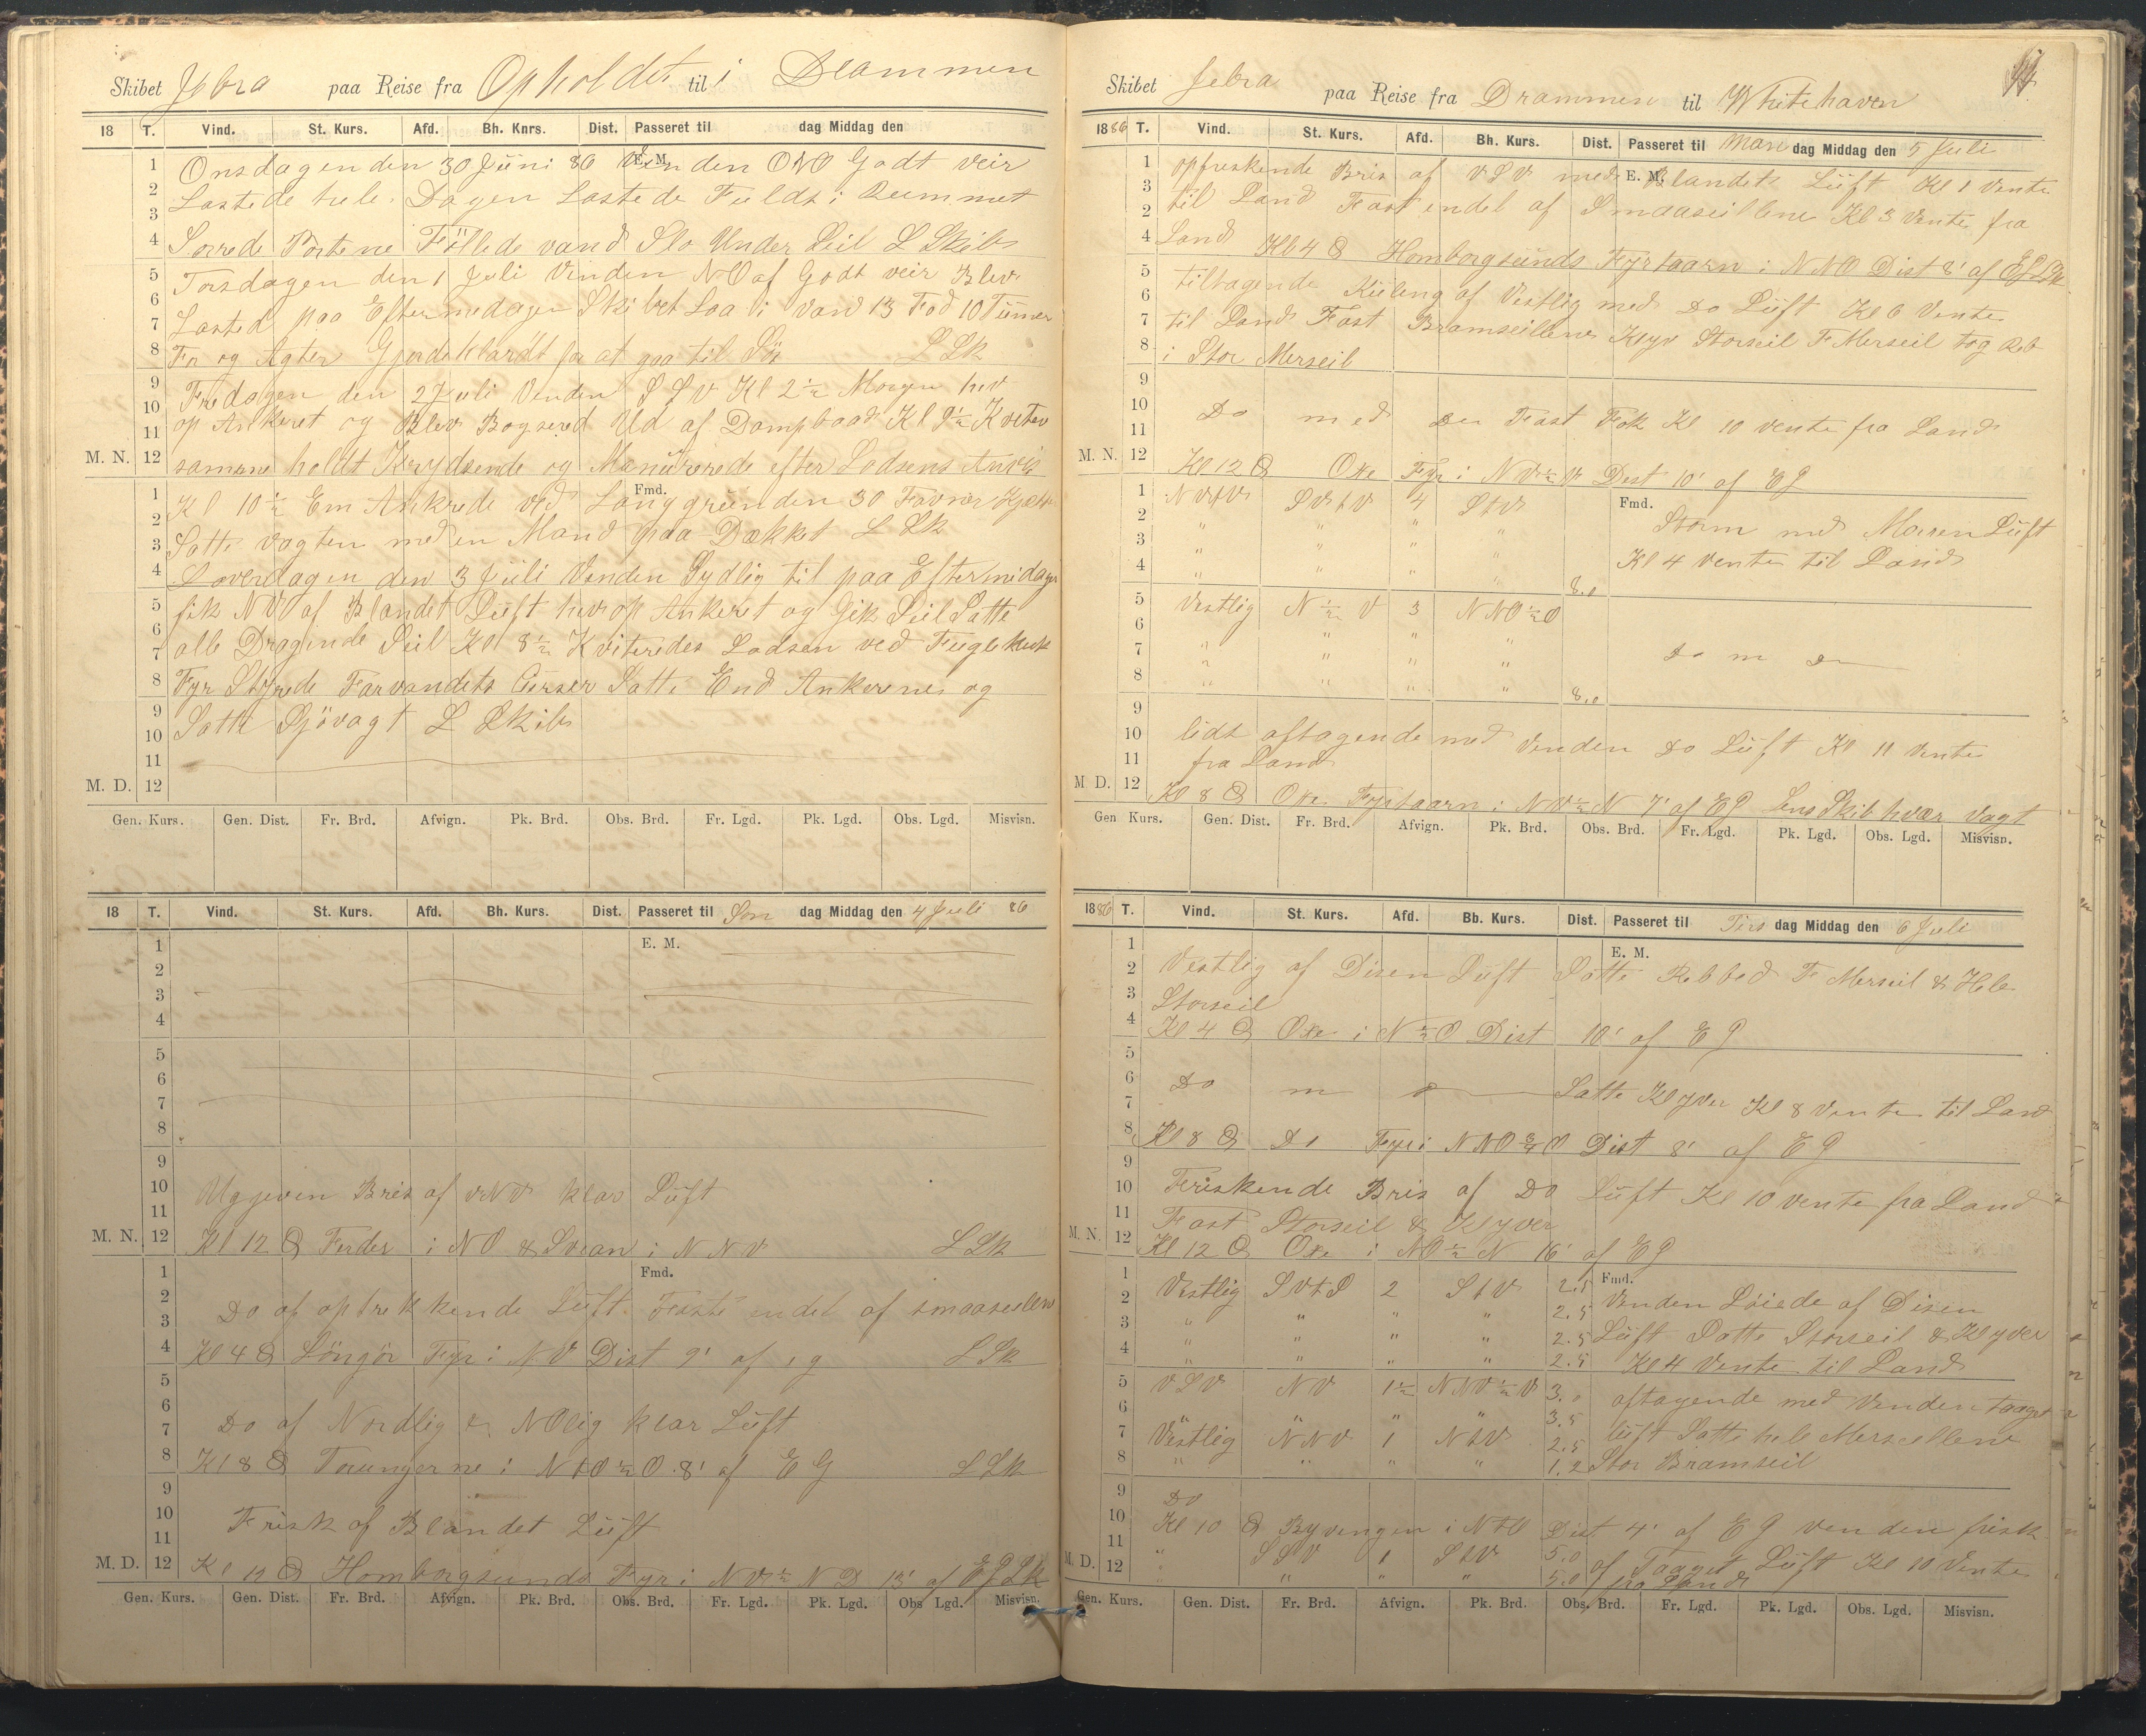 Skibet Jebra paa Reise fra Opholdet til i Drammen
18 T. Vind. St. Kurs. Afd. Bh. Knrs. Dist. Passeret til dag Middag den
E. M.
Onsdagen den 30 Juni 86 Vinden ONO Godt veir
Lastede hele Dagen Lastede Fuldt i Rummet
Sorrede Portene Föllede vand Slo Under Seil L Skib
Torsdagen den 1 Juli Vinden NO af Godt veir Blev
Lasted paa Eftermedagen Skibet Laa i Vand 13 Fod 10 Tümer
For og Agter Gjorde klardt for at gaa til Sös L Sk
Fredagen den 2 Juli Venden SSV Kl 2½ Morgen hev
op Ankeret og Blev Bogsered Ud af Dampbaad Kl 9½
M. N. samme holdt Krydsende og Manürerede efter Lodsens Anvis
Fmd.
Kl 10½ Em Ankrede ved Langgrunden 30 Favner Kjæt
Satte vagten med en Mand paa Dækket L Sk
Loverdagen den 3 Juli Venden Sydlig til paa Eftermidagen
fik NV af Blandet Luft hev op Ankeret og Gik Seil Satte
alle Dragende Seil Kl 8½ Kviteredes Lodsen ved Fuglehuk
Fyr Styrede Farvandets Curser Satte End Ankerene og
Satte Sjövagt L Skib
M. D.
Gen. Kurs. Gen. Dist. Fr. Brd. Afvign. Pk. Brd. Obs. Brd. Fr. Lgd. Pk. Lgd. Obs. Lgd. Misvisn.
18 T. Vind. St. Kurs. Afd. Bh. Kurs. Dist. Passeret til Søn dag Middag den 4 Juli 86
E. M.
Uggeven Bris af vNv klar Lüft
M. N. Kl 12 Ferder i NO & Svean i NNV L Sk
Fmd.
Do af optrekkende Lüft. Faste endel af smaaseilene
Kl 4 Löngör Fyr i NV Dist 9' af L Sk
Do af Nordlig & NOlig klar Lüft
Kl 8 Torungerne i NtO½O 8' af EG L Sk
Frisk af Blandet Lüft
M. D. Kl 12 Homborgsunds Fyr i NV½N D 13' af EG L Sk
Gen. Kurs. Gen. Dist. Fr. Brd. Afvign. Pk. Brd. Obs. Brd. Fr. Lgd. Pk. Lgd. Obs Lgd. Misvisn.
Skibet Jebra paa Reise fra Drammen til Whitehaven
1886 T. Vind. St. Kurs. Afd. Bh. Kurs. Dist. Passeret til Man dag Middag den 5 Juli
E. M.
opfriskende Bris af VSV med Blandet Lüft Kl 1 Vente
til Land Fast endel af Smaaseillene Kl 3 Vente fra
Land Kl 4 Homborgsünds Fyrtaarn i NNO Dist 8' af EG L Sk
tiltagende Küling af Vestlig med Do Lüft Kl 6 Vente
til Land Fast Bramseillene Klyv Storseil F Merseil tog Reb
i Stor Merseil
Do med Do Fast Fok Kl 10 vente fra Land
M. N. Kl 12 Oxe Fyr i NV½V Dist 10' af EG
Fmd.
NVtV SVtV 4 StV
" " " " Storm med Moren Lüft
" " " "
" " " " 8,0 Kl 4 vente til Land
Vestlig N½V 3 NNO½O
" " "
" " " " Do m Do
" " " " 8,0
lidt aftagende med Venden Do Lüft Kl 11 Vente
fra Land
M D. Kl 8 Oxe Fyrtaarn i NO½N 7' af EG Lens Skib hvær Vagt
Gen Kurs. Gen. Dist. Fr. Brd. Afvign. Pk. Brd. Obs. Brd. Fr. Lgd. Pk. Lgd. Obs. Lgd. Misvisn.
1886 T. Vind. St. Kurs. Afd. Bb. Kurs. Dist. Passeret til Tirs dag Middag den 6 Juli
E. M.
Vestlig af Disen Lüft Satte Rebbed F Merseil & Hele
Storseil
Kl 4 Oxe i N½O Dist 10' af EG
Do m Satte Klyver Kl 8 Vente til Land
Kl 8 Do Fyr i NNO¾O Dist 8' af EG
Friskende Bris af Do Lüft Kl 10 vente fra Land
Fast Storseil & Klyver
M. N. Kl 12 Oxe i NO½N 16' af EG
Fmd.
Vestlig SVtS 2 StV 2.5 Venden Löiede af Disen
" " " " 2.5
" " " " 2.5 Lüft Satte Storseil & Klyver
" " " " 2.5 Kl 4 Vente til Land
VSV NV 1½ NNV½V 3.0 aftagende med Venden taaget
" " " " 3.5
Vestlig NNV 1 NtV 2.5 Lüft Satte hele Merseillene
" " " " 1.2 Stor Bramseil
Do
Kl 10 Ryvengen i NtO Dist 4' af EG Venden frisk
" SSV 1 StV 5.0 af Taaget Lüft Kl 10 Vente
M. D. " " " " 5.0 fra Land
Gen. Kurs. Gen. Dist. Fr. Brd. Afvign. Pk. Brd. Obs. Brd. Fr. Lgd. Pk. Lgd. Obs. Lgd. Misvisn.